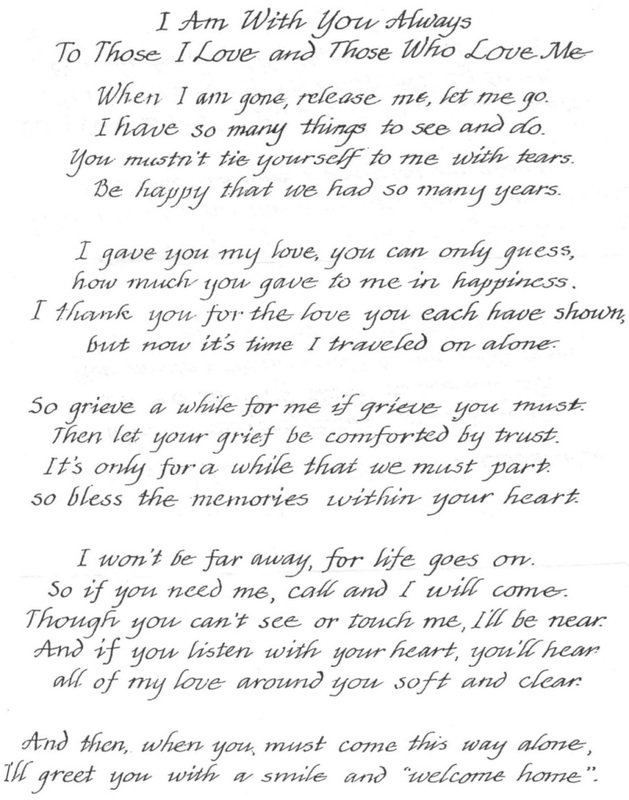 I Am With You Always
To Those I Love and Those Who Love Me
When I am gone, release me, let me go.
I have so many things to see and do.
You mustn't tie yourself to me with tears.
Be happy that we had so many years.
I gave you my love, you can only guess,
how much you gave to me in happiness.
I thank you for the love you each have shown,
but now it's time I traveled on alone.
So grieve a while for me if grieve you must.
Then let your grief be comforted by trust.
It's only for a while that we must part.
so bless the memories within your heart.
I won't be far away, for life goes on.
So if you need me, call and I will come.
Though you can't see or touch me, I'll be near.
And if you listen with your heart, you'll hear
all of my love around you soft and clear.
And then, when you must come this way alone,
I'll greet you with a smile and "welcome home".